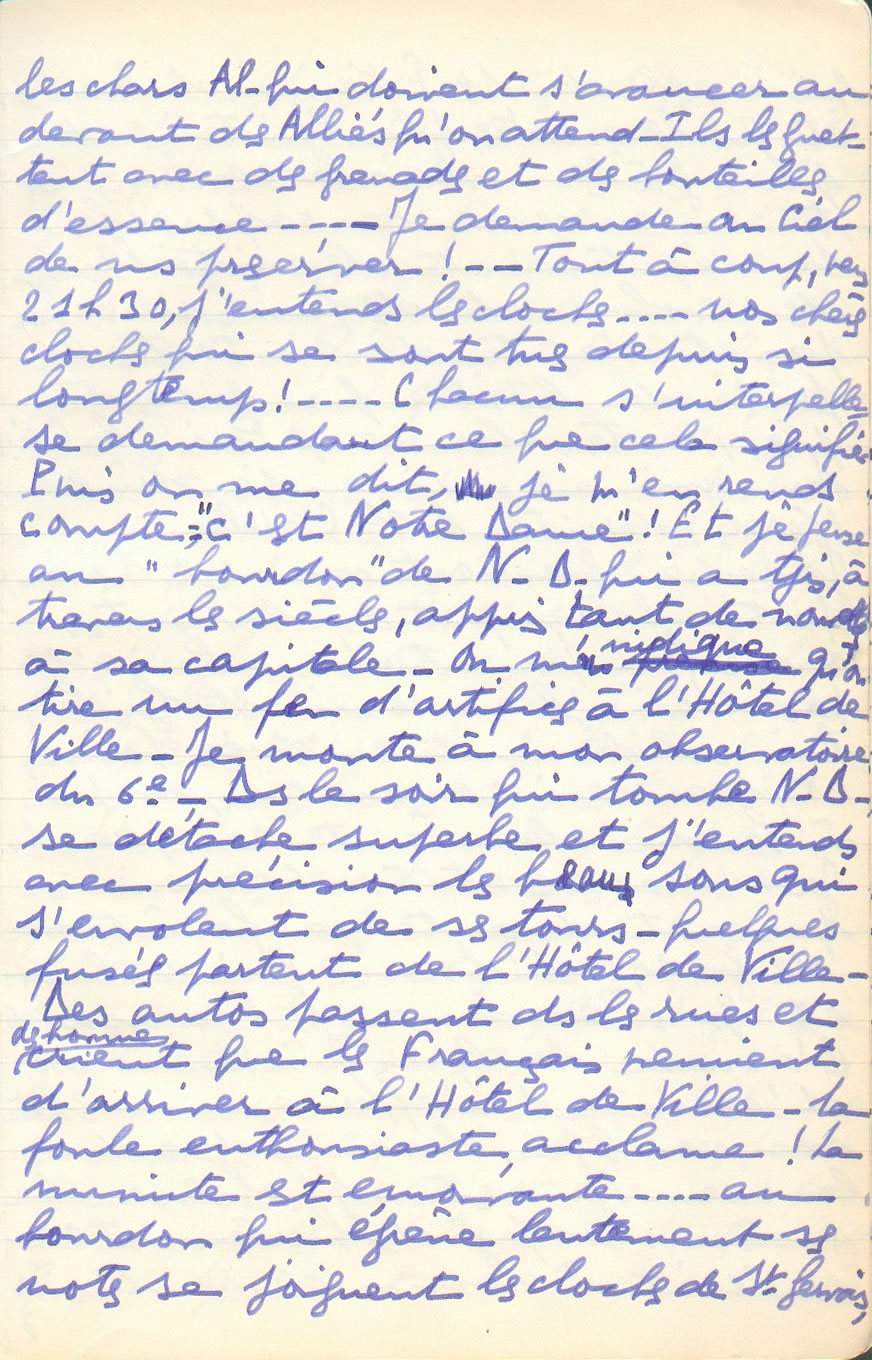 les chars Al- qui doivent s'avancer au
devant ds Alliés qu'on attend - Ils ls guet-
tent avec ds grenads et ds bouteilles
d'essence ---- Je demande au Ciel
de ns préserver ! -- Tout à coup, vers
21h30, j'entends ls clochs ---- nos chèrs
clochs qui se sont tus depuis si
longtemps ! ---- Chacun s'interpelle,
se demandant ce que cela signifie
Puis on me dit, je m'en rends
compte : "c'est Notre Dame" ! Et je pense
au "bourdon" de N-D- qui a tjs, à
travers ls siècls, appris tant de nouvells
à sa capitale - On m'indique qu'on
tire un feu d'artifics à l'Hôtel de
Ville - Je monte à mon observatoire
du 6e - Ds le soir qui tombe N-D-
se détache superbe et j'entends
avec précision ls beaux sons qui
s'envolent de ss tours - quelques
fusés partent de l'Hôtel de Ville -
Des autos passent ds ls rues et
ds hommes crient que ls Français viennent
d'arriver à l'Hôtel de Ville - la
foule enthousiaste, acclame ! La
minute est émouvante ---- au
bourdon qui égrène lentement ss
nots se joignent ls clochs de St Gervais,